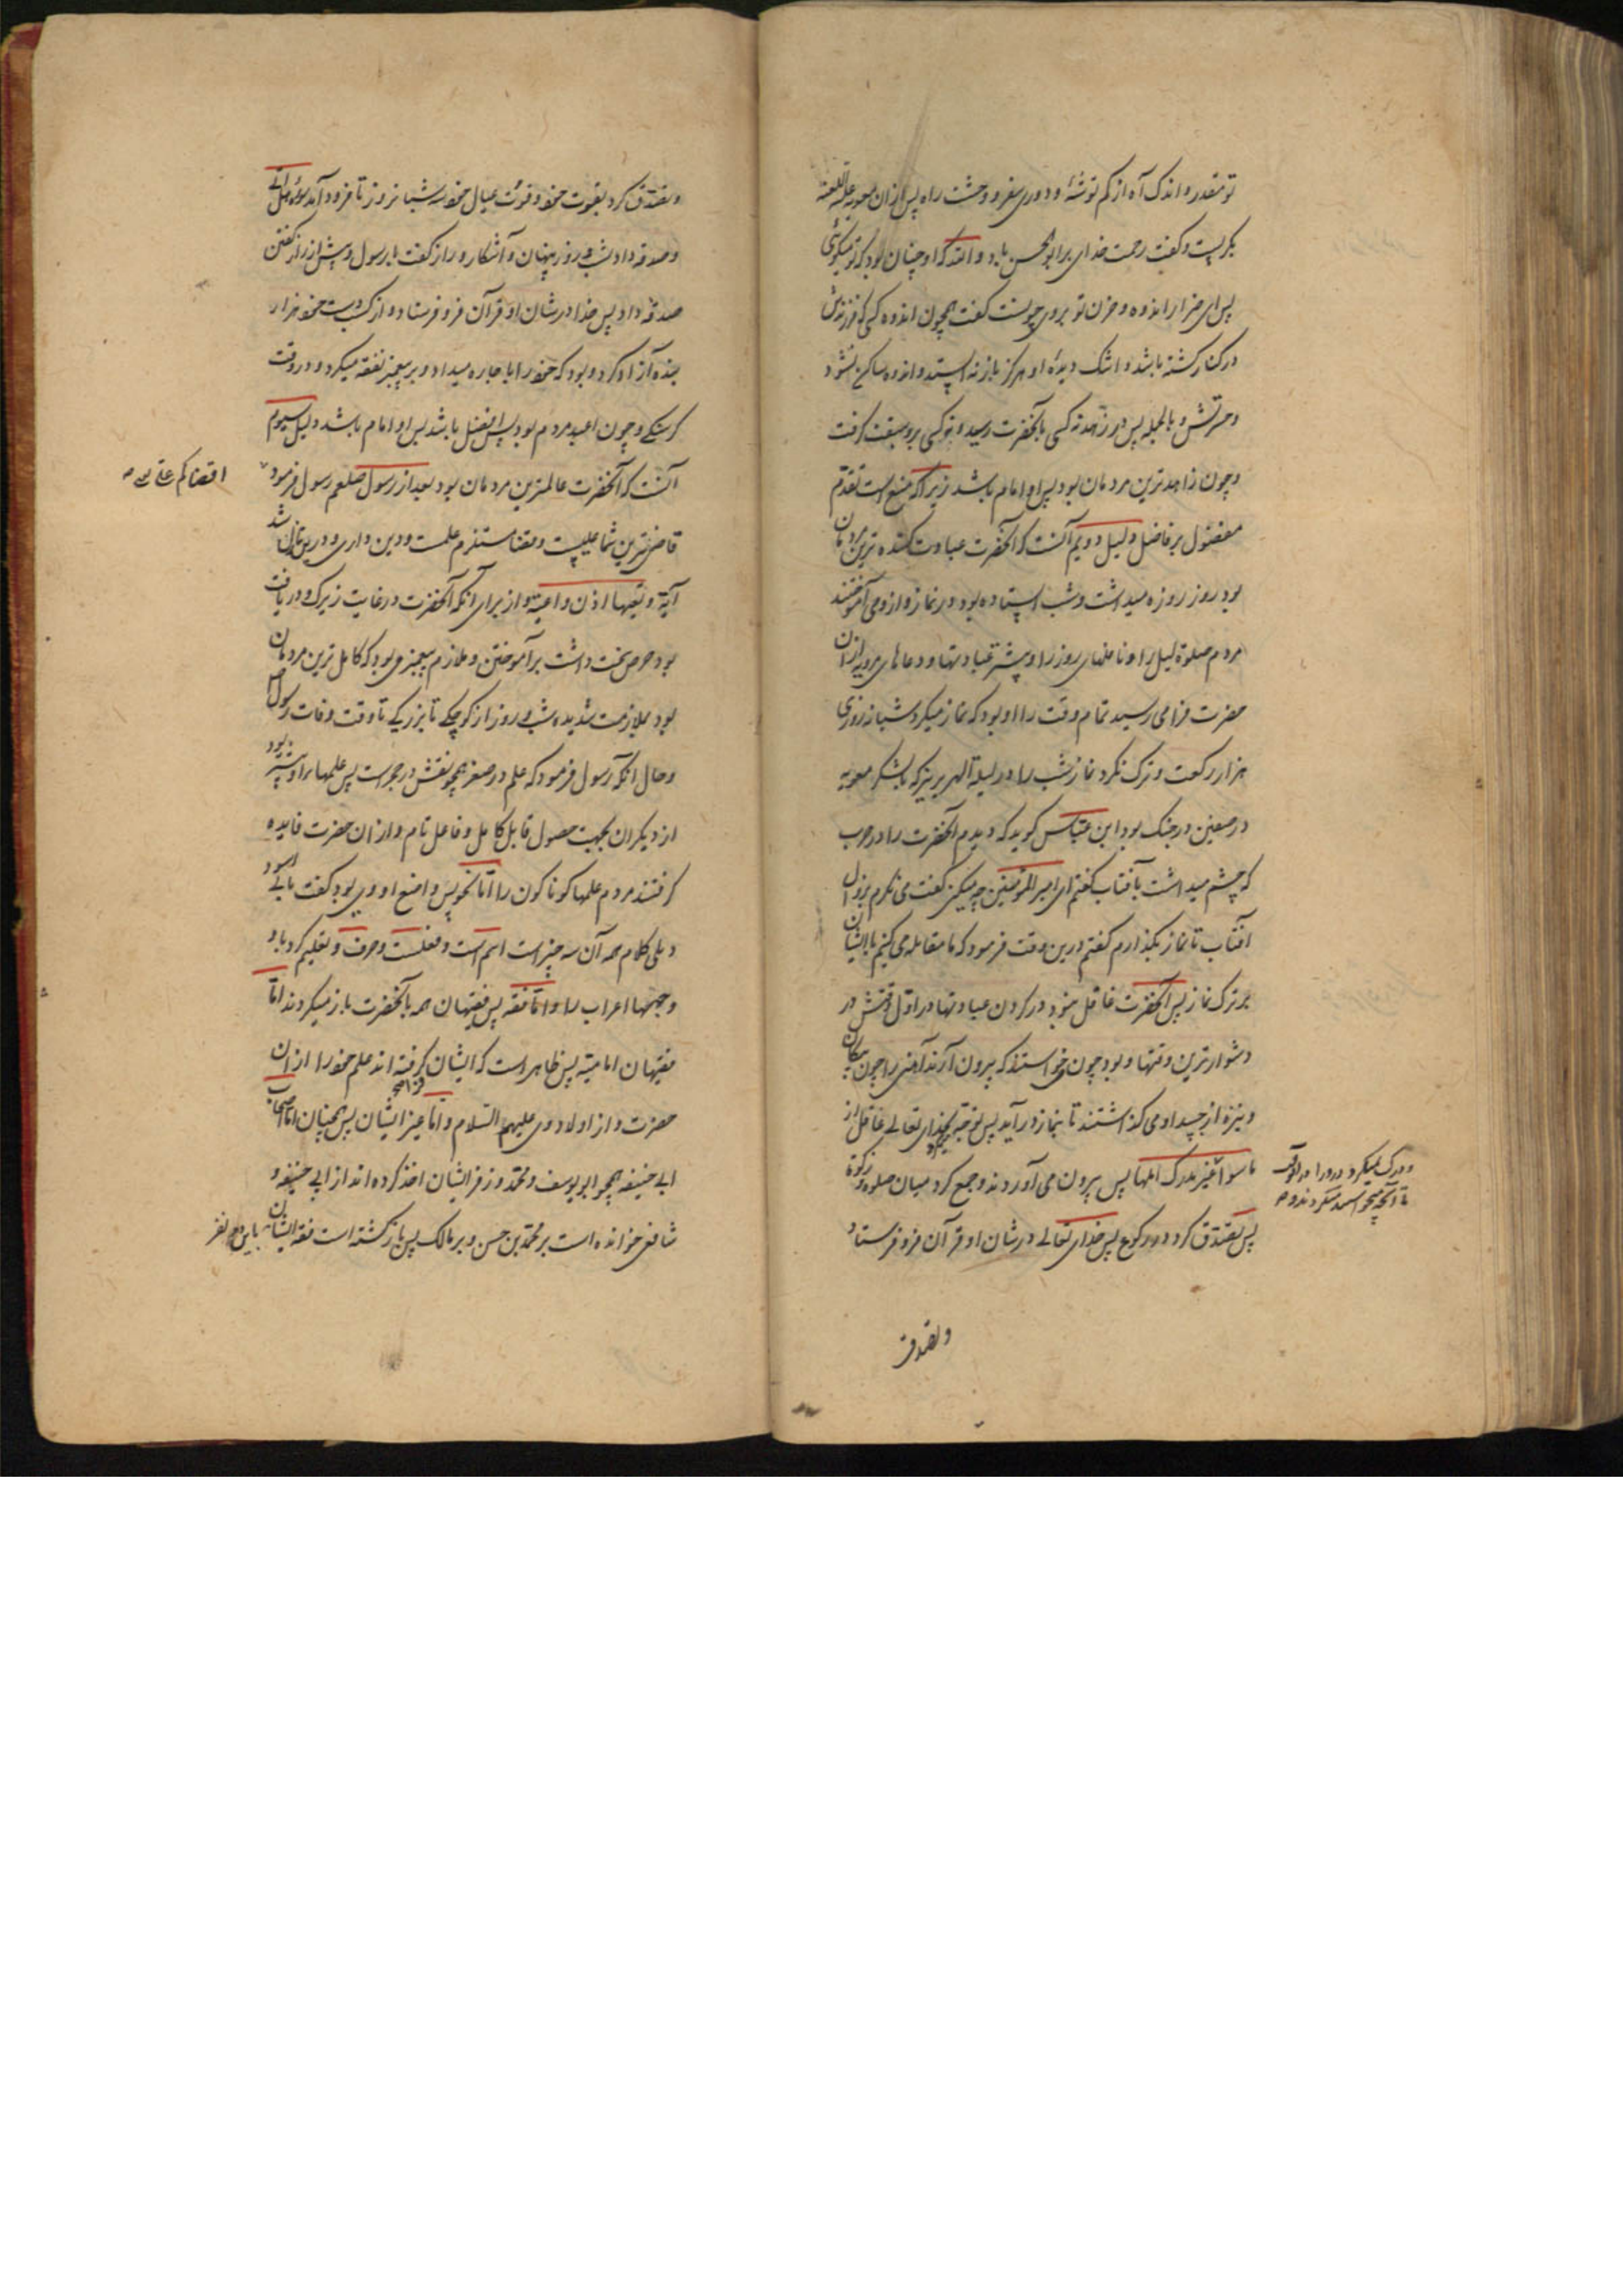 تو مقدر و اندک آه از کم توشۀ و دوری سفر و وحشت راه پس ازان معویه علیه اللعنه
بکریست و کفت رحمت خدای بر ابو الحسن باد و الله که او چنان بود که تو میکوئی
پس ای ضرار اندوه و حزن تو بروی چونست کفت همچون اندوه کسی که فرزندش
در کنار کشته باشد و اشک دیدۀ او هرکز باز نه ایستد و اندوه ساکن نشود
و حرقتش و بالجمله پس در زهد نه کسی بانحضرت رسید و نه کسی برو سبقت کرفت
و چون زاهدترین مردمان بود پس او امام باشد زیرا که ممتنع است تقدم
مفضول بر فاضل دلیل دویم آنست که انحضرت عبادت کننده ترین مردمان
بود روز روزه میداشت و شب ایستاده بود در نماز و از وی آموختند
مردم صلوة لیل را و نافلهای روز را و بیشتر عبادتها و دعاهای مرویه ازان
حضرت فرا می رسید تمام وقت را و بود که نماز میکرد شبانه روزی
هزار رکعت و ترک نکرد نماز شب را در لیلة الهریر نیز که با لشکر معویه
در صفین در جنک بود ابن عباس کوید که دیدم انحضرت را در حرب
که چشم میداشت بآفتاب کفتم ای امیر المؤمنین چه میکنی کفت می نکرم بزوال
آفتاب تا نماز بکذارم کفتم درین وقت فرمود که ما مقابله می کنیم با ایشان
بر ترک نماز پس آنحضرت غافل نبود در کردن عبادتها در اول وقتش در
دشوارترین وقتها و بود چون می خواستند که بیرون آرند آهنی را چون پیکان
و نیزه از جسد او می کذاشتند تا بنماز در آید پس توجه بخدای تعالی غافل از
ما سوا غیر مدرک المها پس بیرون می آوردند و جمع کرد میان صلوة و زکوة
پس تصدق کرد در رکوع پس خدای تعالی در شان او قرآن فرو فرستاد
و تصدق
و تصدق کرد بقوت خود و قوت عیال خود سه شبانروز تا فرود آمد سورۀ هل اتی
و صدقه داد شب و روز پنهان و آشکار و راز کفت با رسول و پیش از راز کفتن
صدقه داد پس خدا در شان او قرآن فرو فرستاد و از کسب دست خود هزار
بنده آزاد کرد و بود که خود را باجاره میداد و بر پیغمبر نفقه میکرد در وقت
کرسنکی و چون اعبد مردم بود پس افضل باشد پس او امام باشد دلیل سیوم
آنست که آنحضرت عالمترین مردمان بود بعد از رسول صلعم رسول فرمود
اقضاکم علی
قاضی ترین شما علیست و قضا مستلزم علمست و دین داری و درین نازل شد
آیۀ و تعیها اذن واعیة و از برای آنکه آنحضرت در غایت زیرکی و دریافت
بود حرص سخت داشت بر آموختن و ملازم پیغمبری بود که کامل ترین مردمان
بود بملازمت شدیده شب و روز از کوچکی تا بزرکی تا وقت وفات رسول
و حال آنکه رسول فرمود که علم در صغر همچو نقش در حجر است پس علمها بر او بیشتر بود
از دیکران بجهت حصول قابل کامل و فاعل تام و ازان حضرت فایده
کرفتند مردم علمها کوناکون را امّا نحو پس واضع او وی بود کفت بابی اسود
دئلی کلام همه آن سه چیز است اسم است و فعلست و حرف و تعلیم کرد باو
وجهها اعراب را و امّا فقه پس فقیهان همه بآنحضرت باز میکردند امّا
فقیهان امامیّه پس ظاهر است که ایشان کرفته اند علم خود را ازان
حضرت و از اولاد وی علیهم السّلام و امّا غیر ایشان پس همچنان امّا اصحاب
ابی حنیفه همچو ابو یوسف و محمّد و زفر ایشان اخذ کرده اند از ابی حنیفه و
شافعی خوانده است بر محمّد بن حسن و بر مالک پس بازکشته است فقه ایشان باین دو نفر